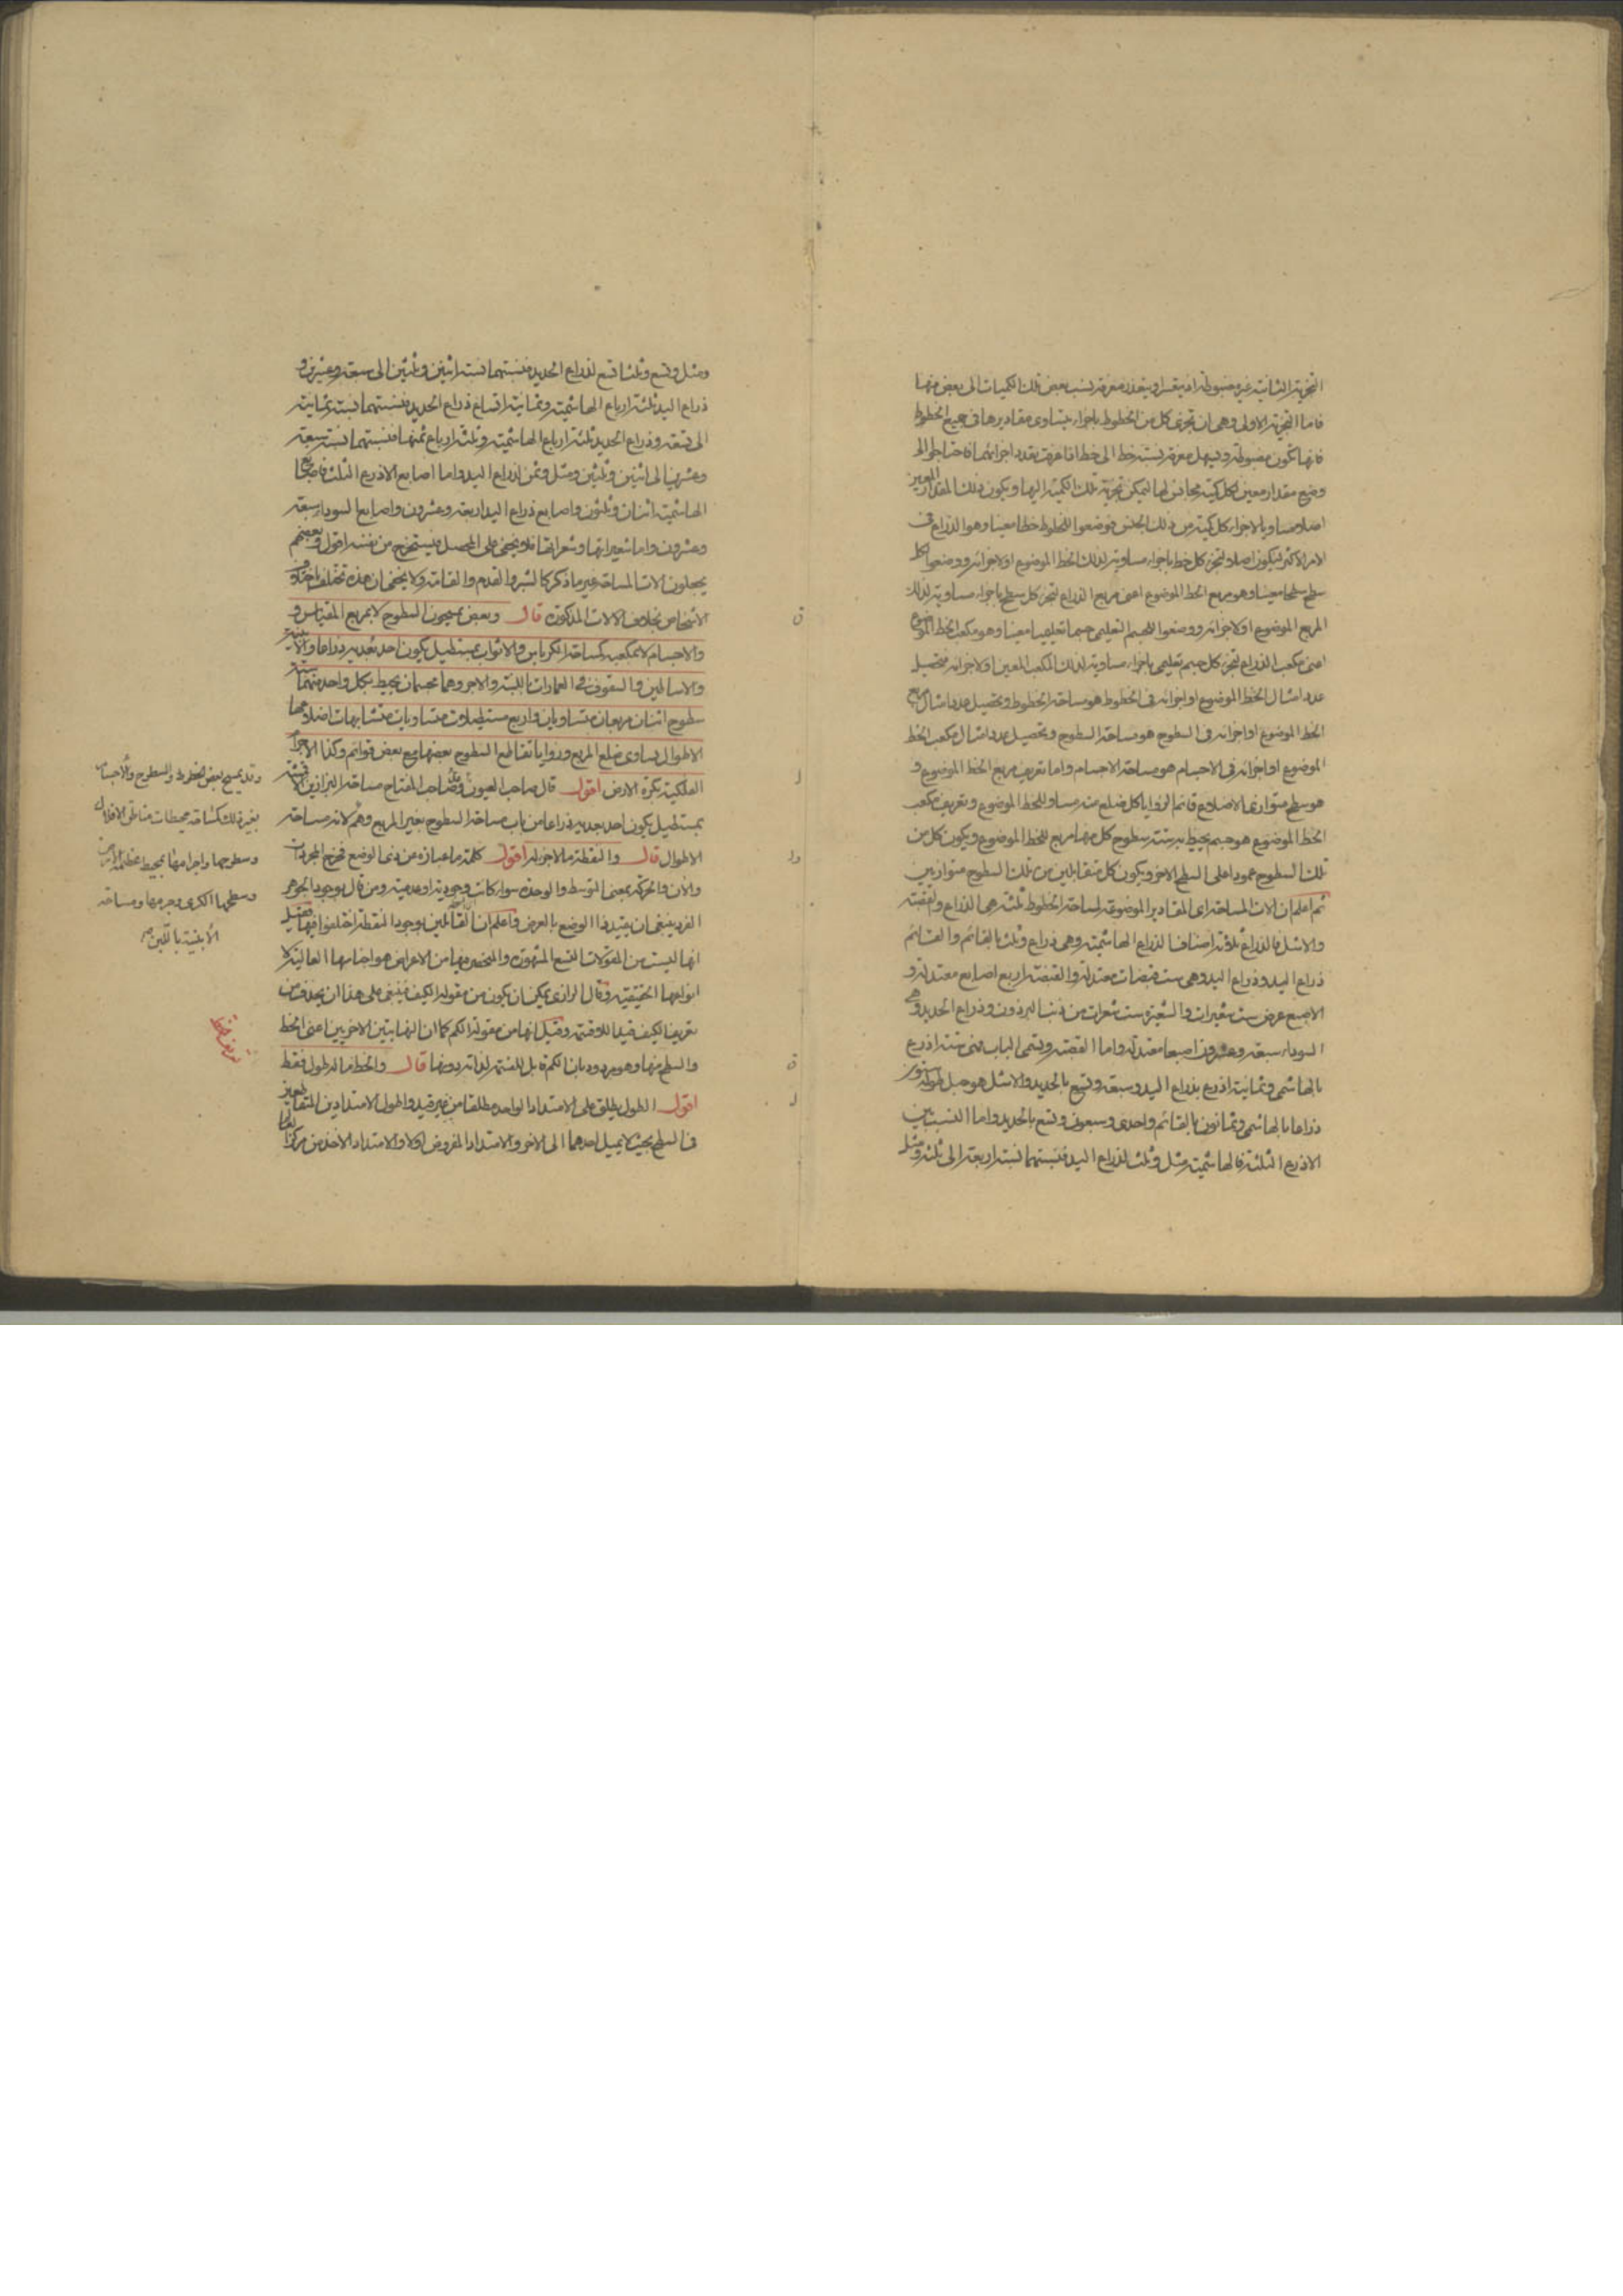 التجزية الثانية غير مضبوطة اذ يعسر او يتعذر معرفة نسب بعض تلك الكميات الى بعض منها
فاما التجزية الاولى وهى ان تجزى كل من الخطوط باجزاء يتساوى مقاديرها فى جميع الخطوط
فانها تكون مضبوطة ويسهل معرفة نسبة خط الى خط اذا عرفت بعدد اجزائهما فاحتاجوا الى
وضع مقدار معين لكل كمية مجانس لها ليمكن تجزية تلك الكمية اليها ويكون ذلك المقدار المعين
اصلا مساويا لاجزاء كل كمية من ذلك الجنس فوضعوا للخطوط خطا معينا وهو الذراع فى
الامر الاكثر ليكون اصلا وتجزى كل خط باجزاء مساوية لذلك الخط الموضوع او لاجزائه ووضعوا لكل
سطح سطحا معينا وهو مربع الخط الموضوع اعنى مربع الذراع لتجزى كل سطح باجزاء مساوية لذلك
المربع الموضوع او لاجزائه ووضعوا للجسم التعليمى جسما تعليميا معينا وهو مكعب الخط الموضوع
اعنى مكعب الذراع لتجزى كل جسم تعليمى باجزاء مساوية لذلك المكعب المعين او لاجزائه فتحصيل
عدد امثال الخط الموضوع او اجزائه فى الخطوط هو مساحة الخطوط وتحصيل عدد امثال مربع
الخط الموضوع او اجزائه فى السطوح هو مساحة السطوح وتحصيل عدد امثال مكعب الخط
الموضوع او اجزائه فى الاجسام هو مساحة الاجسام واما تعريف مربع الخط الموضوع و
هو سطح متوازى الاضلاع قائم الزوايا كل ضلع منه مساو للخط الموضوع وتعريف مكعب
الخط الموضوع هو جسم يحيط به ستة سطوح كل منها مربع للخط الموضوع ويكون كل من
تلك السطوح عمودا على السطح الاخر ويكون كل متقابلين من تلك السطوح متوازيين
ثم اعلم ان الات المساحة اى المقادير الموضوعة لمساحة الخطوط ثلثة هى الذراع والقصبة
والاشل فالذراع ثلاثة اصناف الذراع الهاشمية وهى ذراع وثلث بالقائم والقائم
ذراع اليد وذراع اليد وهى ست قبضات معتدلة والقبضة اربع اصابع معتدلة و
الاصبع عرض ست شعيرات والشعيرة ست شعرات من ذنب البرذون وذراع الحديد وهى
السوداء سبعة وعشرون اصبعا معتدلة واما القصبة وتسمى الباب فهى ستة اذرع
بالهاشمى وثمانية اذرع بذراع اليد وسبعة وتسع بالحديد والاشل هو حبل طوله ستون
ذراعا بالهاشمى وثمانون بالقائم واحدى وسبعون وتسع بالحديد واما النسب بين
الاذرع الثلثة فالهاشمية مثل وثلث لذراع اليد فنسبتهما نسبة اربعة الى ثلثة ومثل
ومثل وتسع وثلثا تسع لذراع الحديد فنسبتهما نسبة اثنين وثلثين الى سبعة وعشرين و
ذراع اليد ثلثة ارباع الهاشمية وثمانية اتساع ذراع الحديد فنسبتهما نسبة ثمانية
الى تسعة وذراع الحديد ثلثة ارباع الهاشمية وثلثة ارباع ثمنها فنسبتهما نسبة سبعة
وعشرين الى اثنين وثلثين ومثل وثمن لذراع اليد واما اصابع الاذرع الثلث فاصابع
الهاشمية اثنان وثلثون واصابع ذراع اليد اربعة وعشرون واصابع السوداء سبعة
وعشرون واما شعيراتها وشعراتها فلا يخفى على المحصل فيستخرج من نفسه اقول وبعضهم
يجعلون الات المساحة غير ما ذكر كالشبر والقدم والقامة ولا يخفى ان هذه تختلف باختلاف
الاشخاص بخلاف الالات المذكورة قال وبعض يمسحون السطوح لا بمربع المقياس و
والاجسام لا بمكعبه كمساحة الكرباس والاثواب بمستطيل يكون احد بعديه ذراعا والابنية
والاساطين والسقوف فى العمارات باللبنة والاجر وهما مجسمان يحيط بكل واحد منهما ستة
سطوح اثنان مربعان متساويان واربع مستطيلات متساويات متشابهات اضلاعها
الاطوال يساوى ضلع المربع وزوايا تقاطع السطوح بعضها مع بعض قوائم وكذا الاجرام
الفلكية بكرة الارض اقول قال صاحب العيون وعد صاحب المفتاح مساحة البزازين الاقمشة
بمستطيل يكون احد بعديه ذراعا من باب مساحة السطوح بغير المربع وهم لانه مساحة
الاطوال قال والنقطة ما لا جزء له اقول كلمة ما عبارة عن ذى الوضع فخرج المجردات
والان والحركة بمعنى التوسط والوحدة سواء كانت وجودية او عدمية ومن قال بوجود الجوهر
الفرد ينبغى ان يقيد ذا الوضع بالعرض واعلم ان القائلين بوجود النقطة اختلفوا فيها فقيل
انها ليست من المقولات التسع المشهورة والمنحصر فيها من الاعراض هو اجناسها العالية لا
انواعها الحقيقية وقال الرازى يمكن ان يكون من مقولة الكيف فينبغى على هذا ان يحذف من
تعريف الكيف قيد اللاقسمة وقيل انها من مقولة الكم كما ان النهايتين الاخريين اعنى الخط
والسطح منها وهو مردود بان الكم قابل للقسمة لذاته دونها قال والخط ما له طول فقط
اقول الطول يطلق على الامتداد الواحد مطلقا من غير قيد واطول الامتدادين المتقاطعين
فى السطح بحيث لا يميل احدهما الى الاخر والامتداد المفروض اولا والامتداد الاخذ من مركز العالم
وقد يمسح بعض الخطوط والسطوح والاجسام
بغير ذلك كمساحة محيطات مناطق الافلاك
وسطوحها واجرامها بمحيط عظيمة الارض
وسطحها الكرى وجرمها ومساحة
الابنية باللبن
تعريف خط